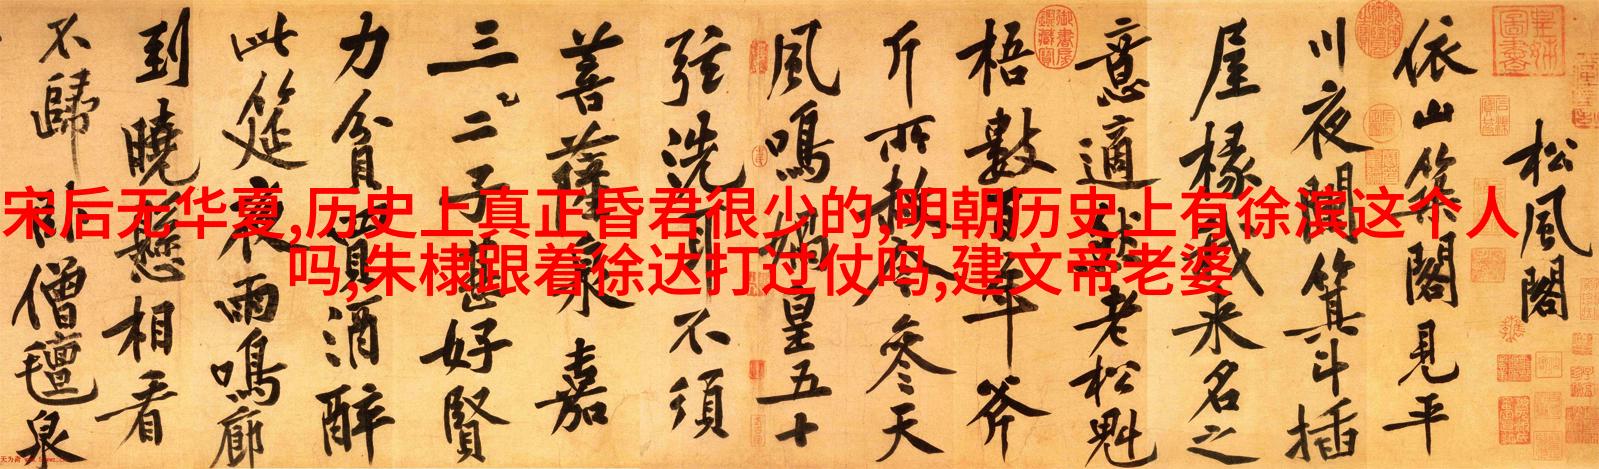 宋后无华夏,历史上真正昏君很少的,明朝历史上有徐滨这个人
吗,朱棣跟着徐达打过仗吗,建文帝老婆
松風閣
依山築閣見平
川夜闌箕斗插
屋椽我來名之
意適然老松魁
梧數百年斧
斤所赦今參天
風鳴媧皇五十
弦洗耳不須
菩薩泉嘉
三二子甚好賢
力貧買酒醉
此筵夜雨鳴廊
到曉懸相看
不歸臥僧氈泉
皇姊圖書